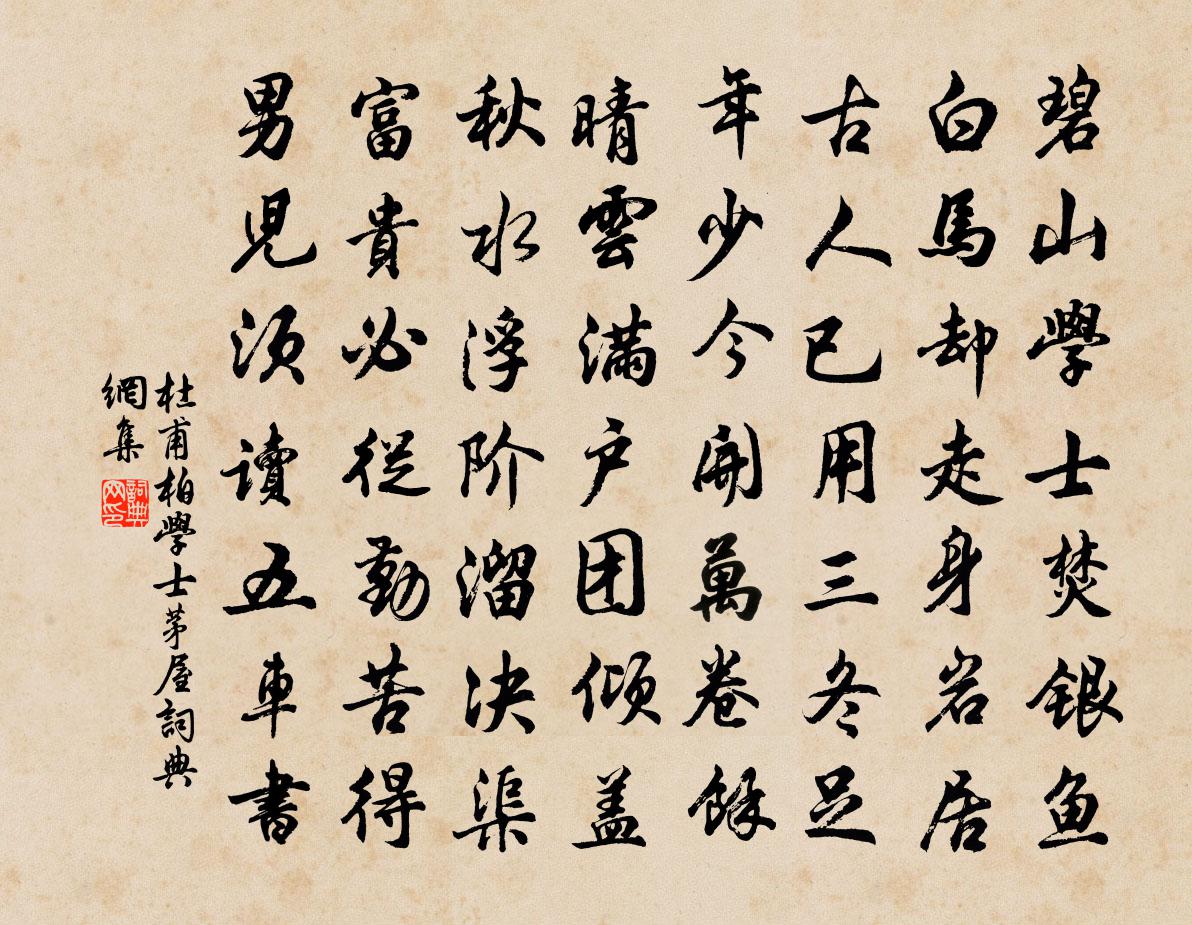 碧山學士焚銀鱼
白馬却走身岩居
古人已用三冬足
年少今開萬卷餘
晴雲满户团倾盖
秋水浮阶溜决渠
富貴必從勤苦得
男児须讀五車書
杜甫柏學士茅屋詞典
網集
詞典
网印